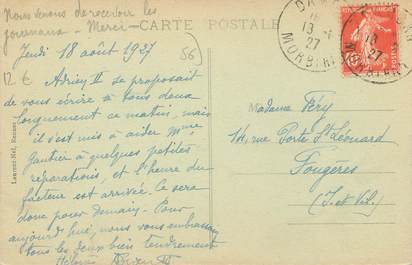 Nous venons de recevoir les
journaux - Merci
CARTE POSTALE
Jeudi 18 août 1927
56
12 €
Adrien II se proposait
de vous écrire à tous deux
longuement ce matin, mais
il s'est mis à aider Mme
Gautier à quelques petites
réparations, et l'heure du
facteur est arrivée. Ce sera
donc pour demain. Pour
aujourd'hui, nous vous embrassons
tous les deux bien tendrement
Adrien II
Madame Féry
14, rue Porte St Léonard
Fougères
(I. et Vil.)
Laurent-Nel, Rennes
MORBIHAN
27
18
27